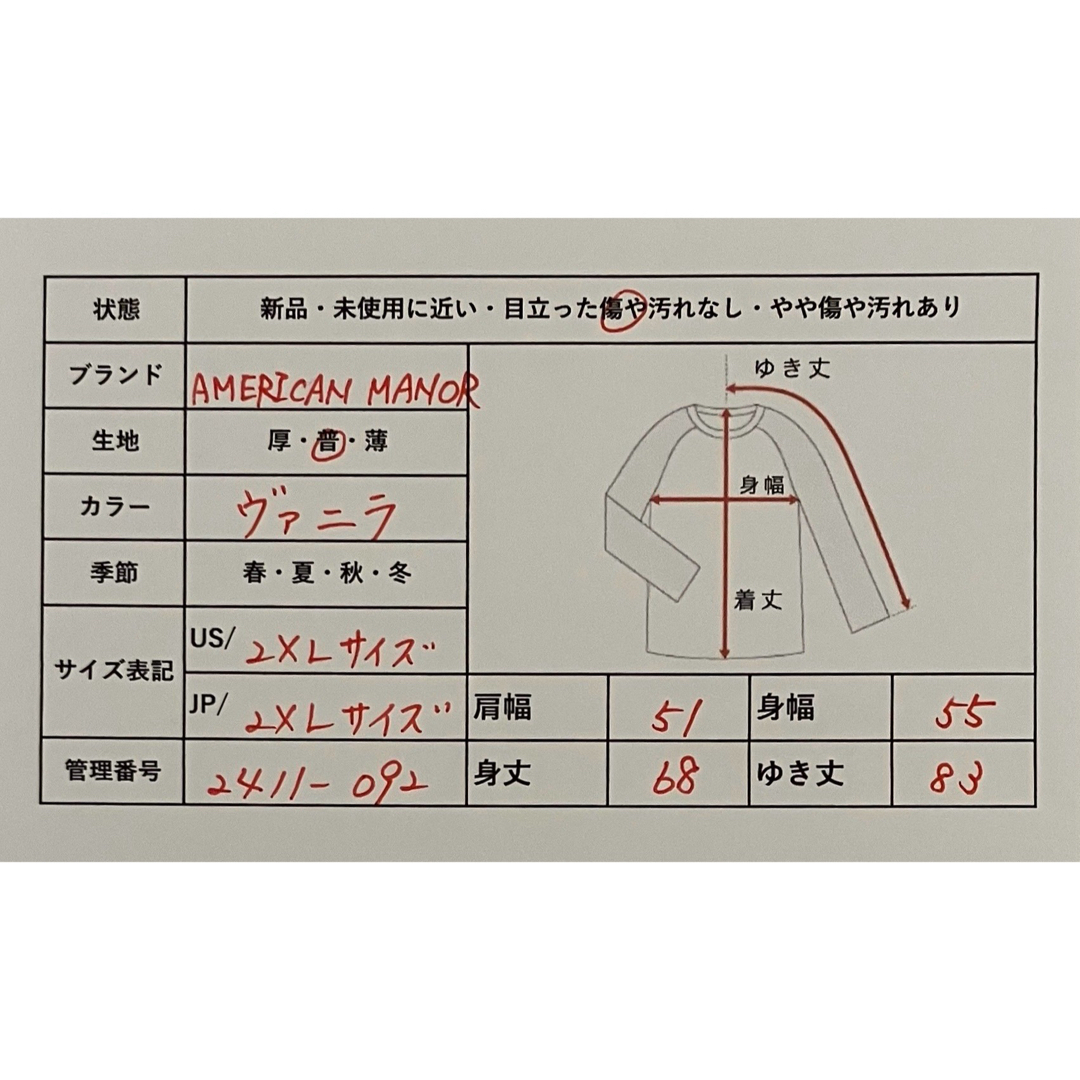 状態 新品・未使用に近い・目立った傷や汚れなし・やや傷や汚れあり
ブランド AMERICAN MANOR
ゆき丈
生地 厚・普・薄
身幅
カラー ヴァニラ
季節 春・夏・秋・冬
着丈
サイズ表記
US/ 2XLサイズ
JP/ 2XLサイズ 肩幅 51 身幅 55
管理番号 2411-092 身丈 68 ゆき丈 83